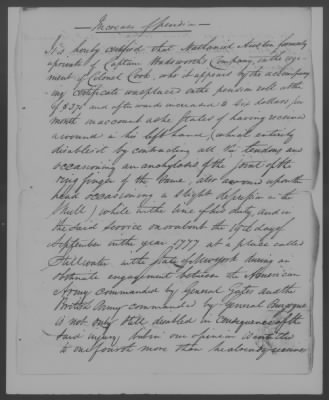 Increase of pension
It is hereby certified that Nathaniel Austin formerly
a private of Captain Wadsworths Company, in the regi-
ment of Colonel Cook, who it appears by the accompany-
ing certificate was placed on the pension roll at the
of and afterwards increased to six dollars per
month on account as he states of having received
a wound in his left hand, (which entirely
disabled it by contracting all the tendons and
occasioning an anchylosis of the joint of the
ring finger of the same, also a wound upon the
head occasioning a slight depression in the
skull) while in the line of his duty, and in
the said service on or about the 19th day of
September in the year 1777, at a place called
Stillwater in the state of Newyork during an
obstinate engagement between the American
Army commanded by General Gates and the
British Army commanded by General Burgoyne
is not only still disabled in consequence of the
said injury, but in our opinion is entitled
to one fourth more than he already receives